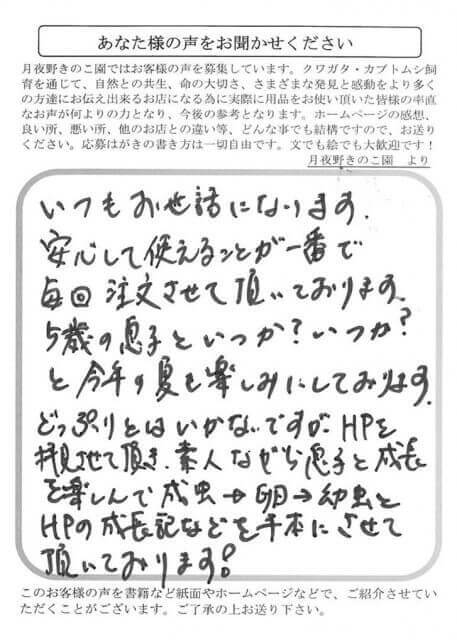 あなた様の声をお聞かせください
月夜野きのこ園ではお客様の声を募集しています。クワガタ・カブトムシ飼
育を通じて、自然との共生、命の大切さ、さまざまな発見と感動をより多く
の方達にお伝え出来るお店になる為に実際に用品をお使い頂いた皆様の率直
なお声が何よりの力となり、今後の参考となります。ホームページの感想、
良い所、悪い所、他のお店との違い等、どんな事でも結構ですので、お送り
ください。応募はがきの書き方は一切自由です。文でも絵でも大歓迎です！
月夜野きのこ園　より
いつもお世話になります.
安心して使えることが一番で
毎回注文させて頂いております.
5歳の息子といつか？いつか？
と今年の夏も楽しみにしております.
どっぷりとはいかないですが、HPを
拝見させて頂き、素人ながら息子と成長
を楽しんで成虫→卵→幼虫と
HPの成長記などを手本にさせて
頂いております！
このお客様の声を書籍など紙面やホームページなどで、ご紹介させてい
ただくことがございます。ご了承の上お送り下さい。